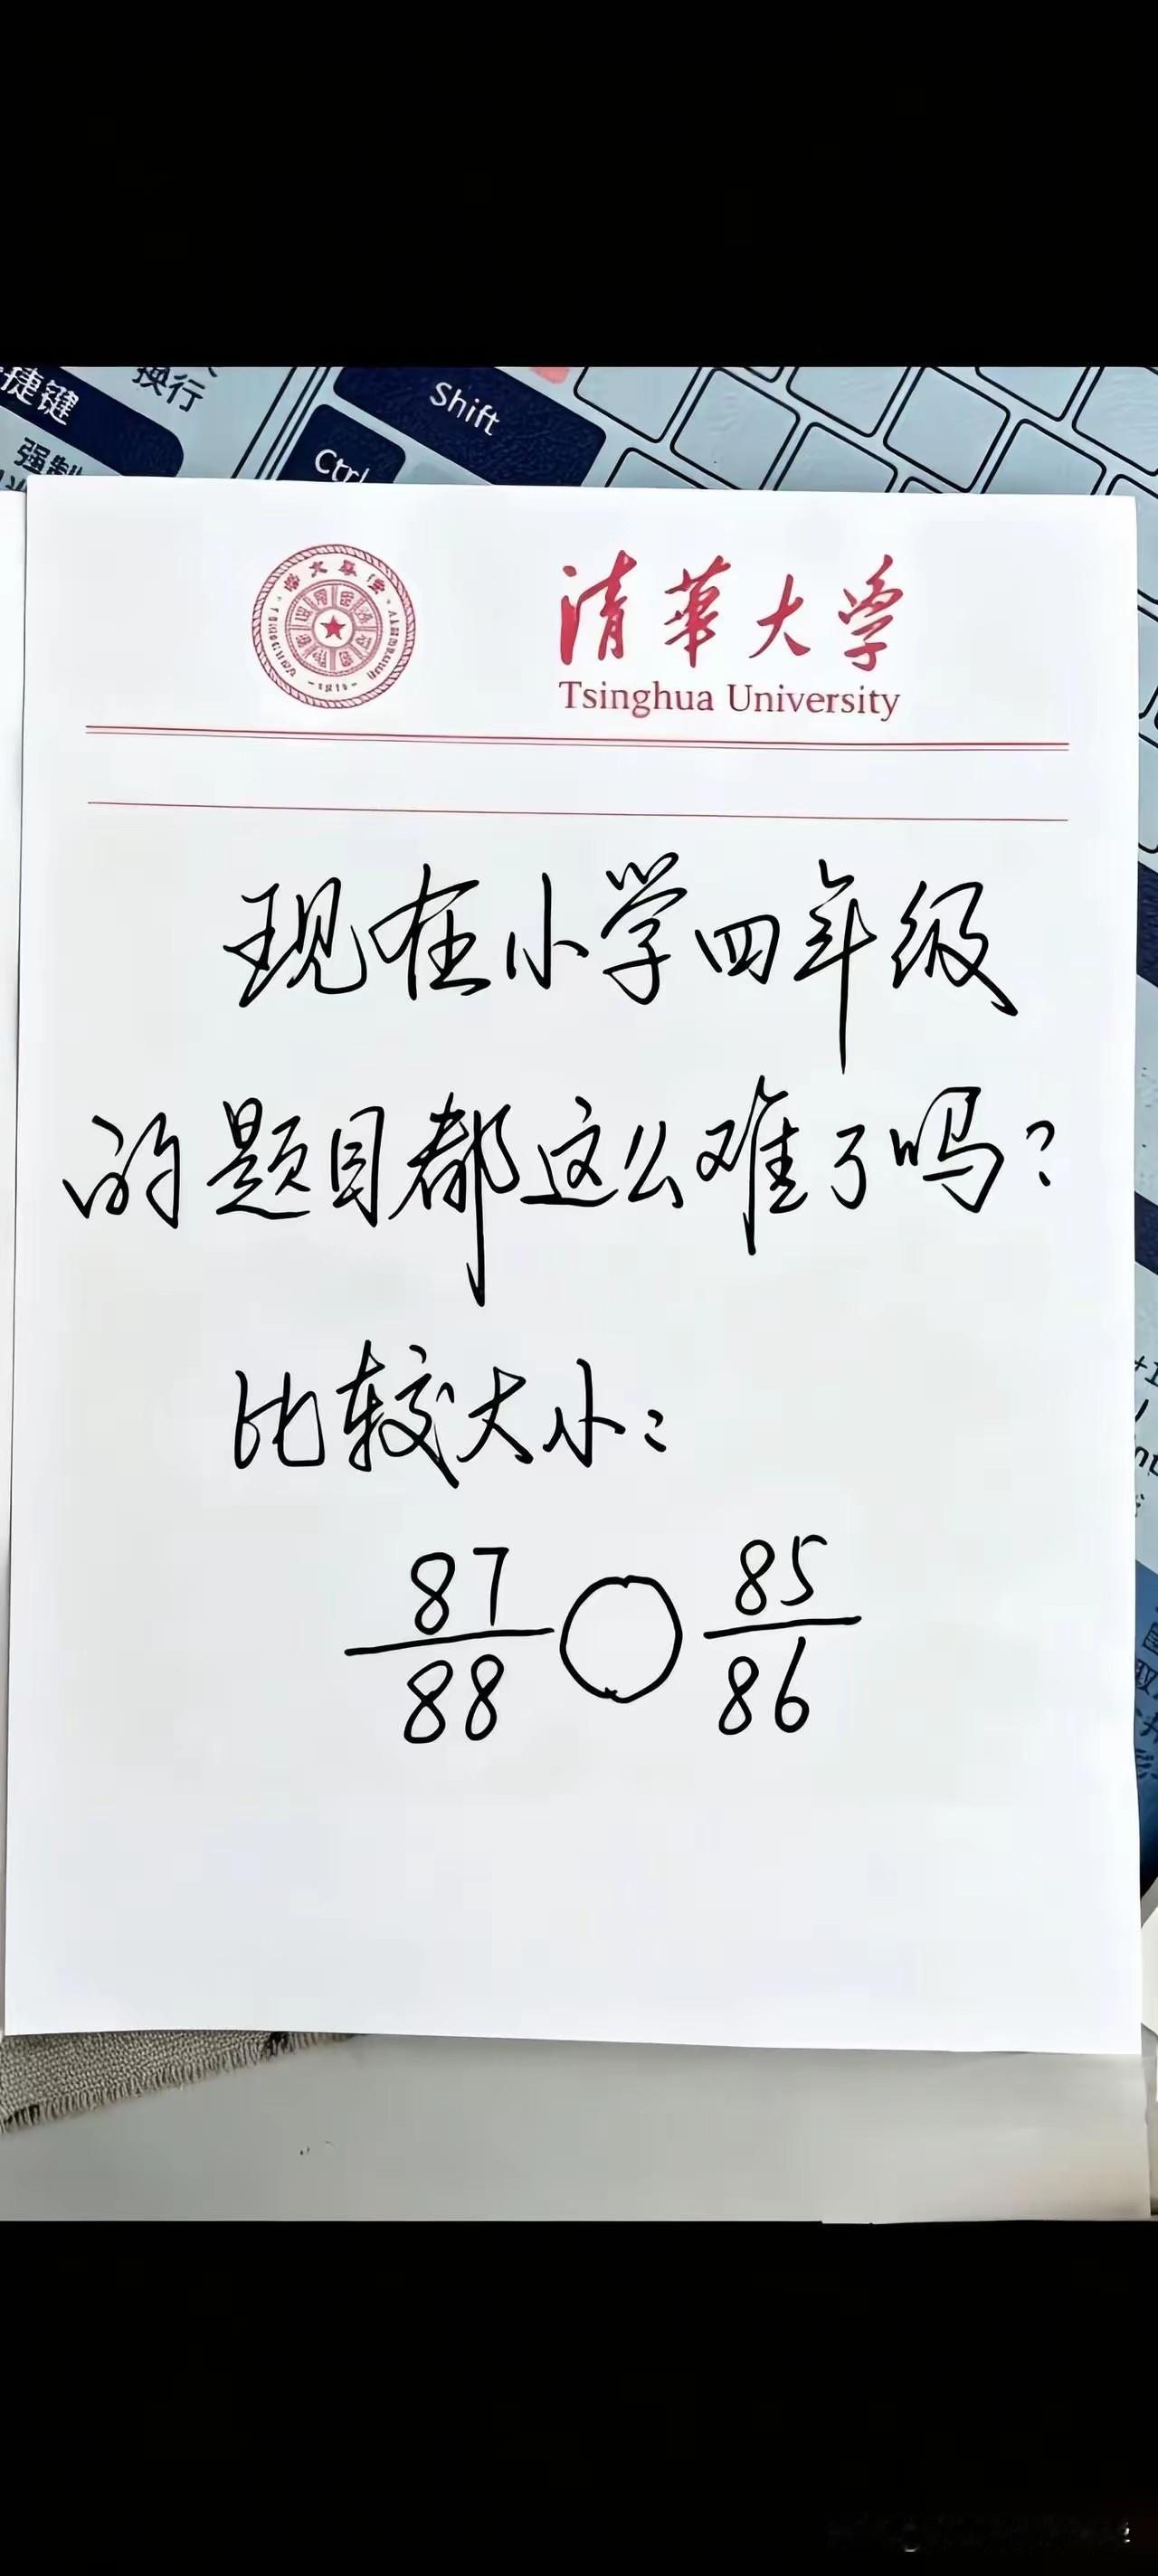 捷键
换行
Shift
强制
Ctrl
清華大學
Tsinghua University
现在小学四年级
的题目都这么难了吗?
比较大小:
87/88 ○ 85/86